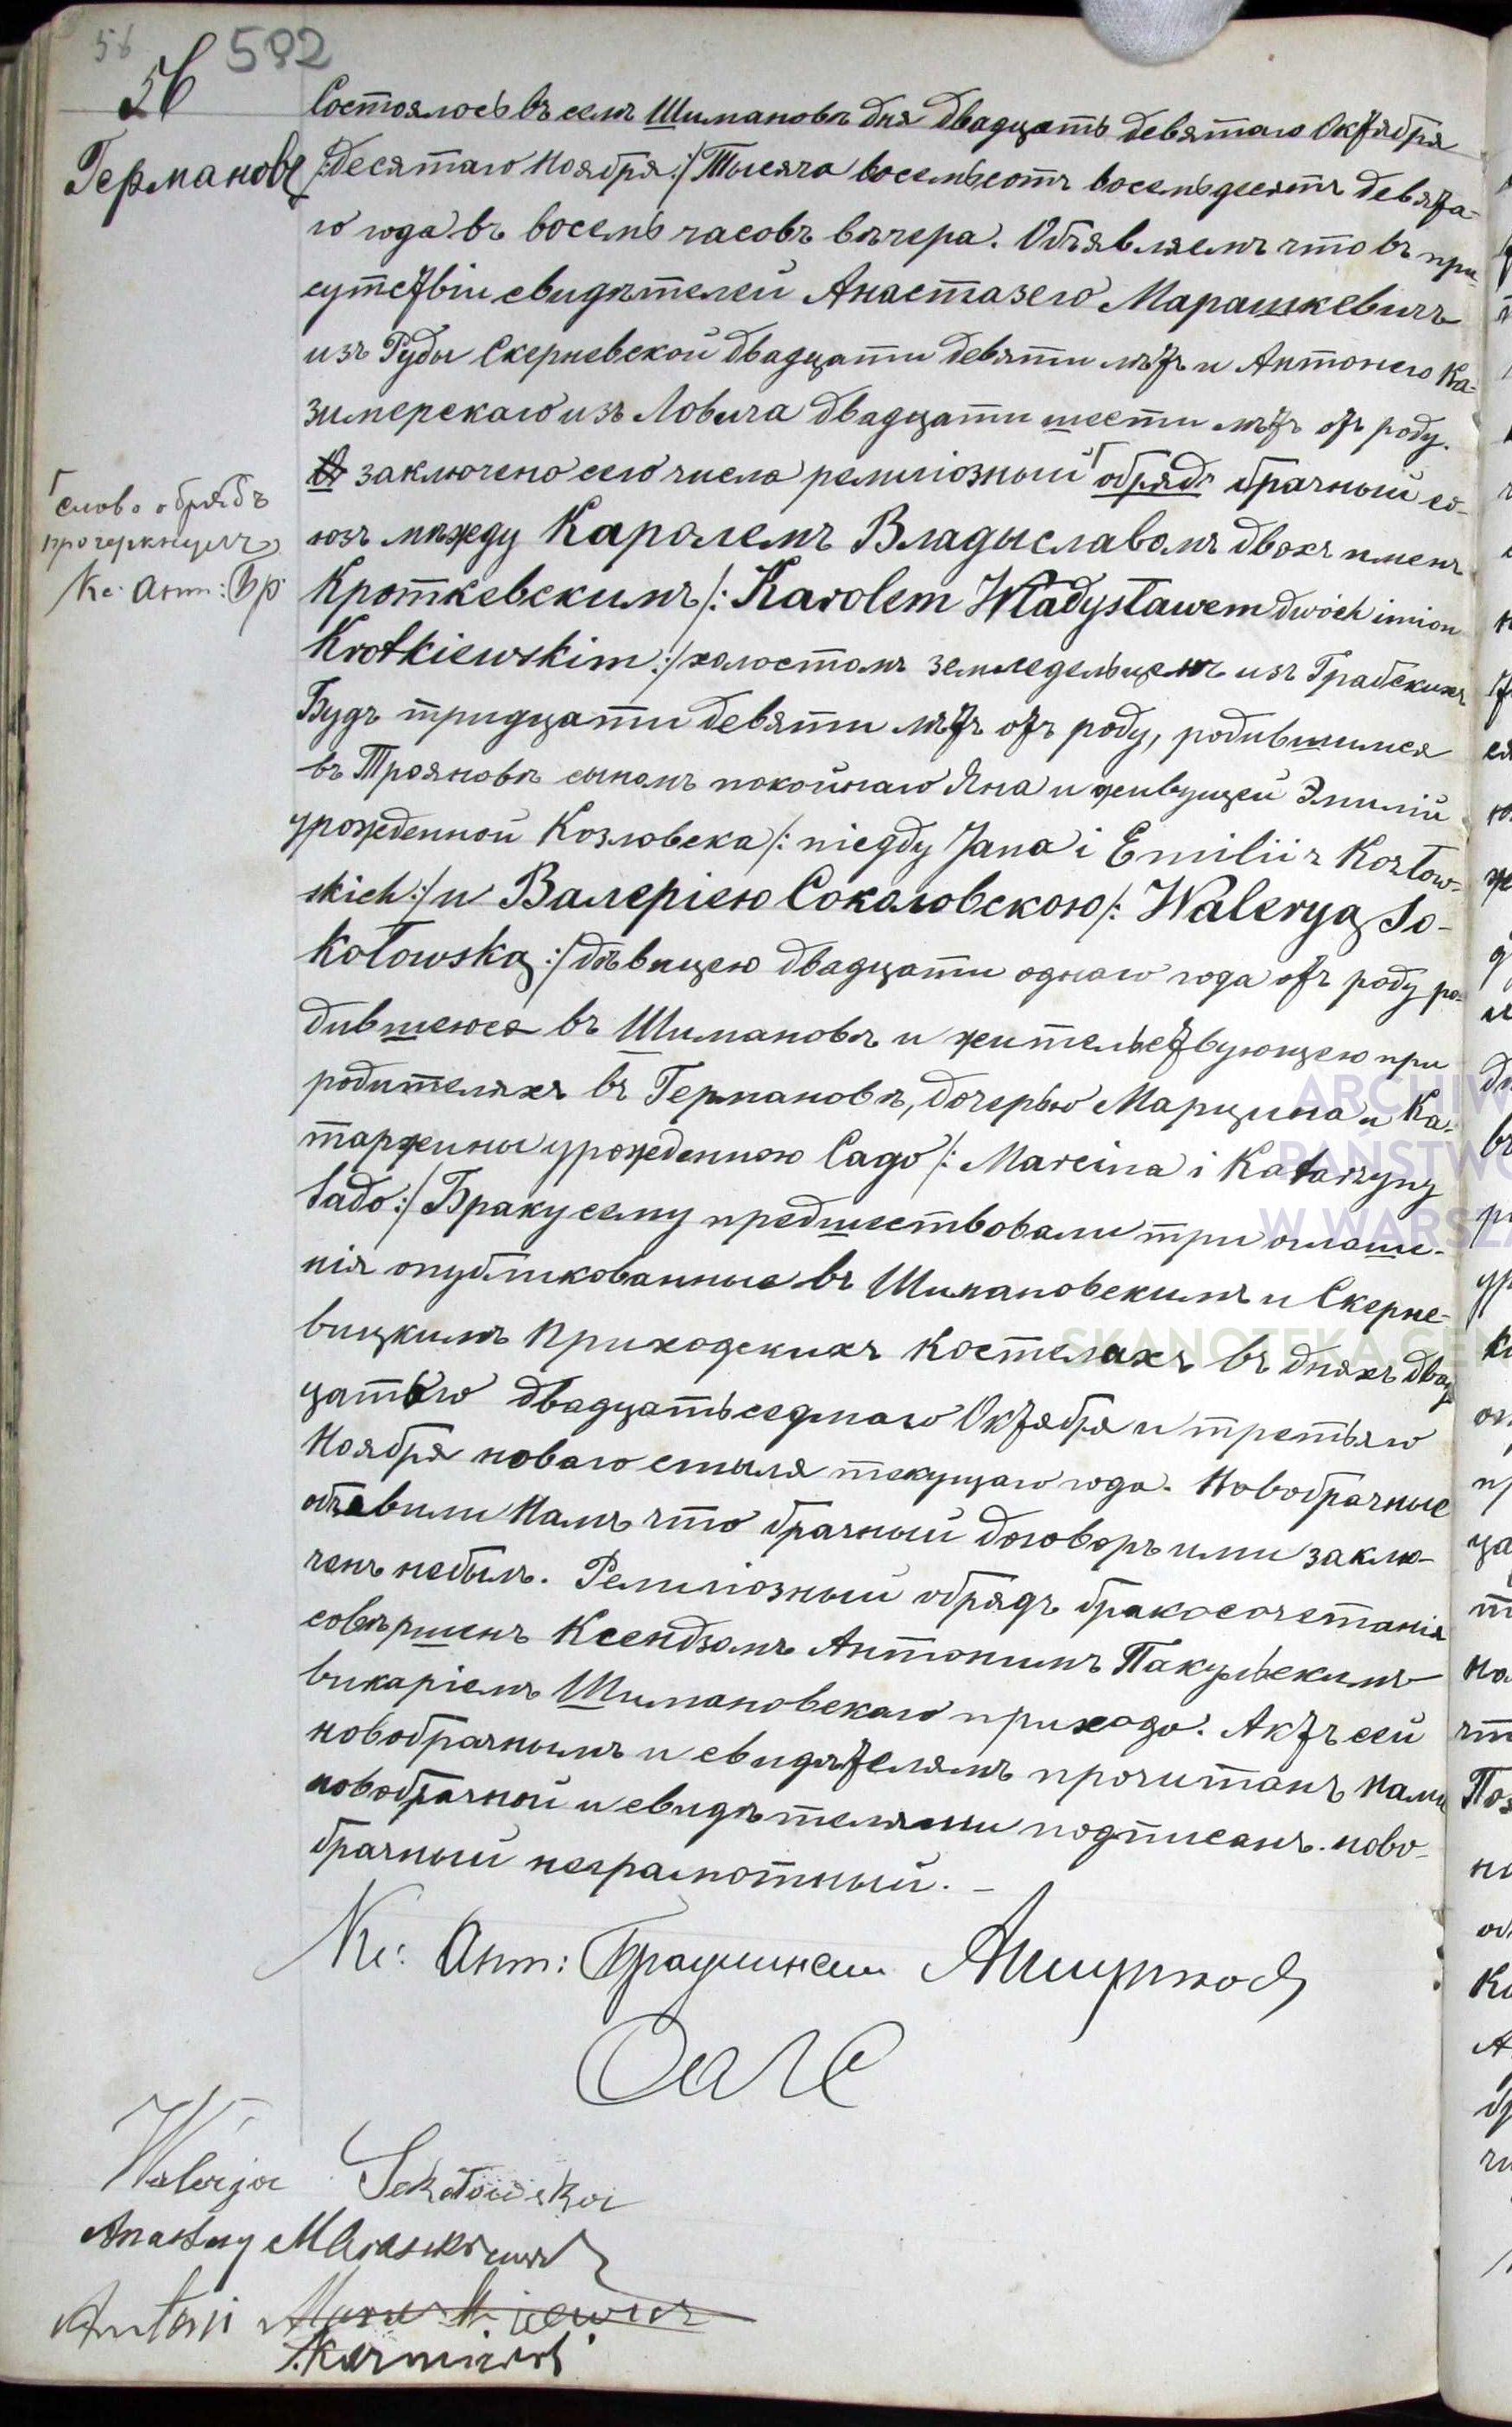 56 592
56
Германовъ
Состоялось въ селѣ Шимановѣ дня двадцать девятаго Октября
/:десятаго Ноября:/ Тысяча восемьсотъ восемьдесятъ девята-
го года въ восемь часовъ вѣчера. Объявляемъ что въ при-
сутствіи свидѣтелей Анастазего Марашкевичъ
изъ Руды Скерневской двадцати девяти лѣтъ и Антонего Ка-
зимерскаго изъ Ловича двадцати шести лѣтъ отъ роду.
заключено сего числа религіозный обрядъ брачный со-
юзъ мѣжду Каролемъ Владыславомъ двохъ именъ
Кроткевскимъ /: Karolem Władysławem dwóch imion
Krotkiewskim :/ холостомъ земледельцемъ изъ Грабскихъ
Будъ тридцати девяти лѣтъ отъ роду, родившимся
въ Трояновѣ сыномъ покойнаго Яна и живущей Эмиліи
урожденной Козловска /: niegdy Jana i Emilii z Kozłow-
skich :/ и Валеріею Соколовскою /: Walerya So-
kołowską :/ дѣвицею двадцати однаго года отъ роду ро-
дившеюся въ Шимановѣ и жительствующею при
родителяхъ въ Германовѣ, дочерью Марцина и Ка-
таржины урожденною Садо /: Marcina i Katarzyny
Sado :/ Браку сему предшествовали три оглаше-
нія опубликованные въ Шимановскимъ и Скерне-
вицкимъ Приходскихъ Костелахъ въ дняхъ двад-
цатого двадцать седмаго Октября и третьяго
Ноября новаго стыля текущаго года. Новобрачные
объявили Намъ что брачный договоръ ими заклю-
ченъ небылъ. Религіозный обрядъ бракосочетанія
совѣршенъ Ксендзомъ Антонимъ Пакульскимъ
викаріемъ Шимановскаго прихода. Актъ сей
новобрачнымъ и свидѣтелямъ прочитанъ Нами
новобрачной и свидѣтелями подписанъ. ново-
брачный неграмотный. -
слово обрядъ
прочеркнулъ
Кс: Ант: Бр
Кс: Ант:
Walerja Sokołowska
Anastazy Maraszkiewicz
Antoni
Kazmierski
ARCHIW
PAŃSTWO
W WARSZA
SKANOTEKA.GEN